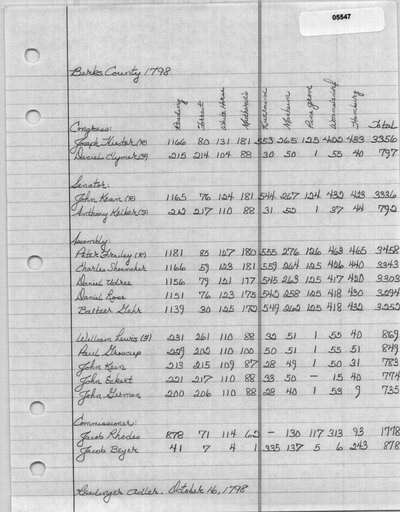 05547
Berks County 1798
Reading Forrest White Horse Pine grove Womelsdorf Hamburg
Congress: Total
Joseph Hiester (R) 1166 80 131 181 553 265 125 422 433 3356
Daniel Clymer (F) 215 214 104 88 30 50 1 55 40 797
Senator:
John Kean (R) 1165 76 124 181 544 267 124 432 423 3336
Anthony Kelker (F) 212 217 110 88 31 52 1 37 44 792
Assembly:
Peter Frailey (R) 1181 85 127 180 555 276 126 463 465 3458
Charles Shoemaker 1166 59 123 181 559 264 125 426 440 3343
Daniel Udree 1156 79 121 177 545 263 125 417 420 3303
Daniel Rose 1151 76 123 173 540 258 125 418 430 3294
Baltzer Gehr 1139 30 125 172 549 262 125 418 432 3252
William Lewis (F) 231 261 110 88 32 51 1 55 40 869
Paul Groscup 229 202 110 100 50 51 1 55 51 849
John Kein 213 215 109 87 28 49 1 50 31 783
John Eckert 221 217 110 88 33 50 — 15 40 774
John Germar 200 206 110 88 28 40 1 53 9 735
Commissioner:
Jacob Rhodes 878 71 114 62 — 130 117 313 93 1778
Jacob Beyer 41 7 4 1 335 137 5 6 243 878
Readinger Adler. October 16, 1798